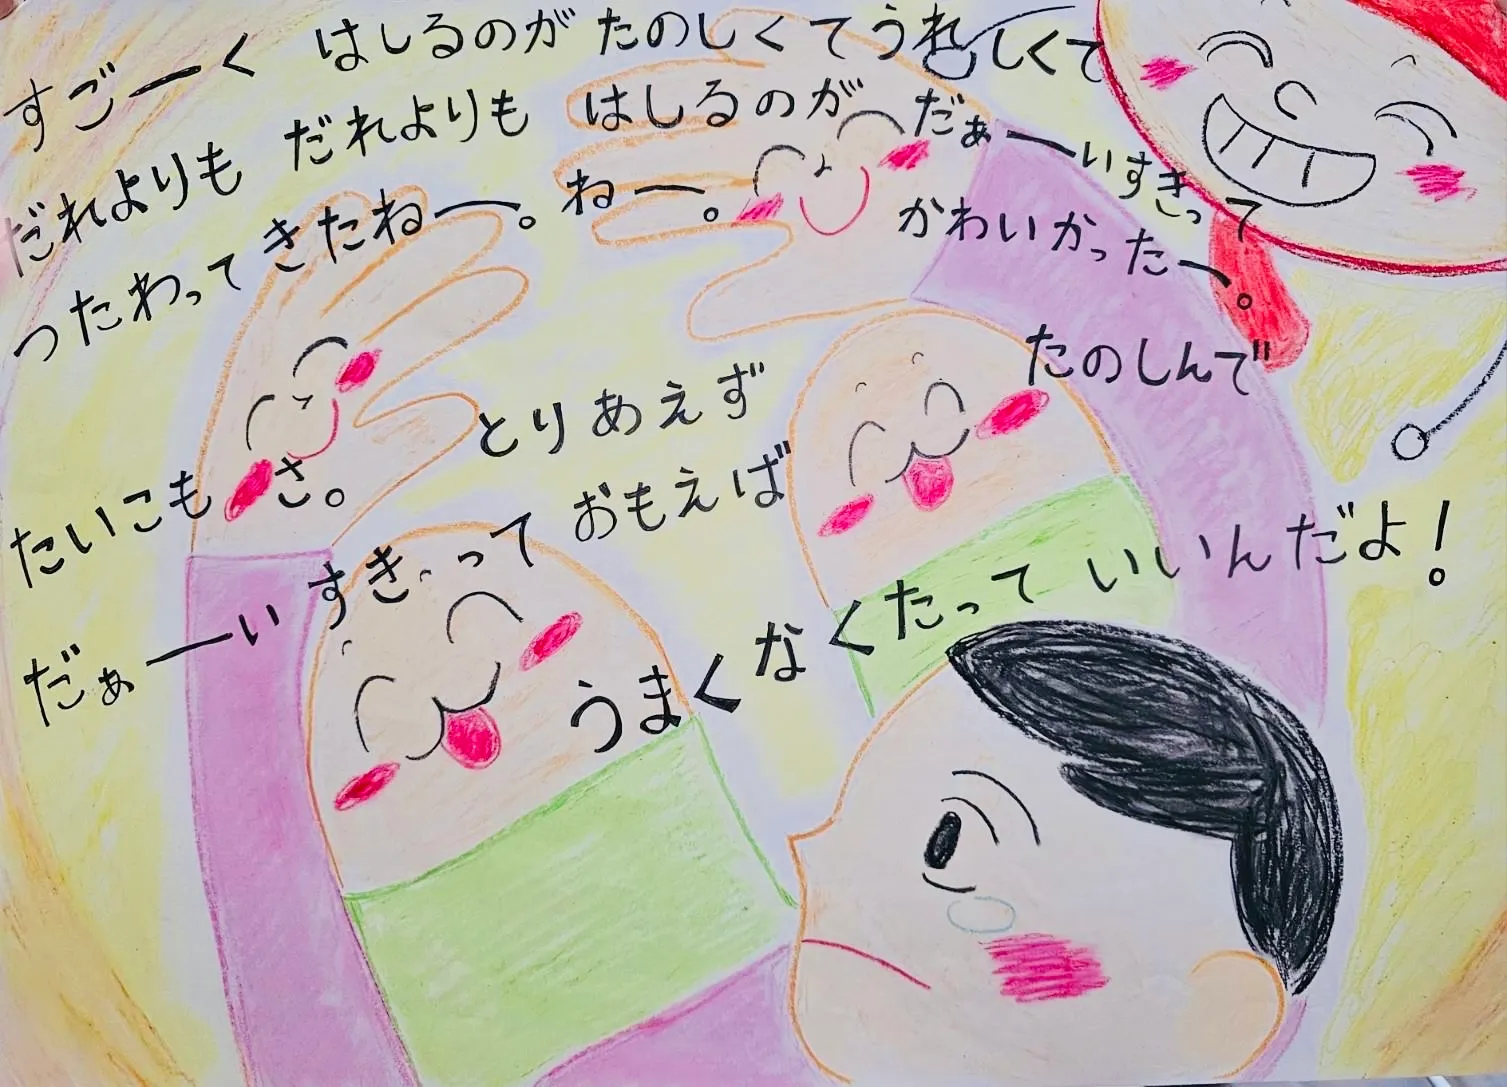 すごーく はしるのが たのしくて うれしくて
だれよりも だれよりも はしるのが だぁーいすきって
つたわって きたねー。ねー。 かわいかったー。
とりあえず たのしんで
たいこも さ。
だぁーいすきって おもえば
うまくなくたって いいんだよ!